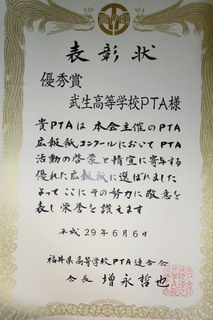 表彰状
優秀賞
武生高等学校PTA様
貴PTAは本会主催のPTA
広報紙コンクールにおいてPTA
活動の啓蒙と精宣に寄与する
優れた広報紙に選ばれました
よってここにその努力に敬意を
表し栄誉を讃えます
平成29年6月6日
福井県高等学校PTA連合会
会長 増永哲也